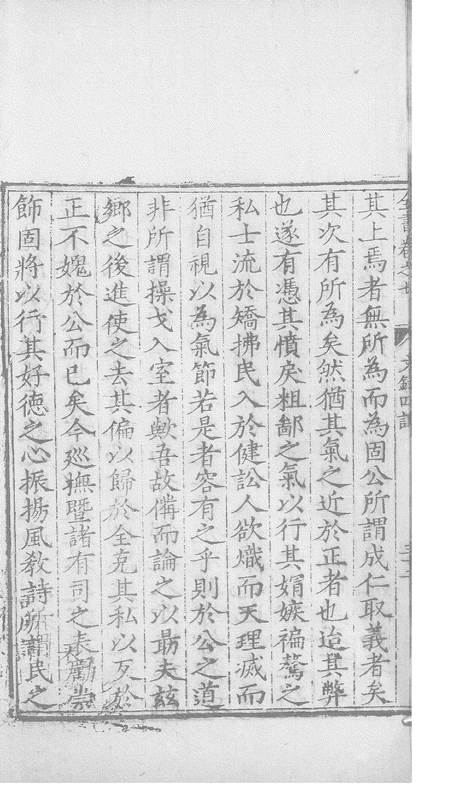 全書卷之七 文錄四記
其上焉者無所為而為固公所謂成仁取義者矣
其次有所為矣然猶其氣之近於正者也迨其弊
也遂有憑其憤戾粗鄙之氣以行其媢嫉褊驁之
私士流於矯拂民入於健訟人欲熾而天理滅而
猶自視以為氣節若是者容有之乎則於公之道
非所謂操戈入室者歟吾故備而論之以勗夫茲
鄉之後進使之去其偏以歸於全克其私以反於
正不媿於公而已矣今巡撫暨諸有司之表勵崇
飾固將以行其好德之心振揚風教詩所謂民之